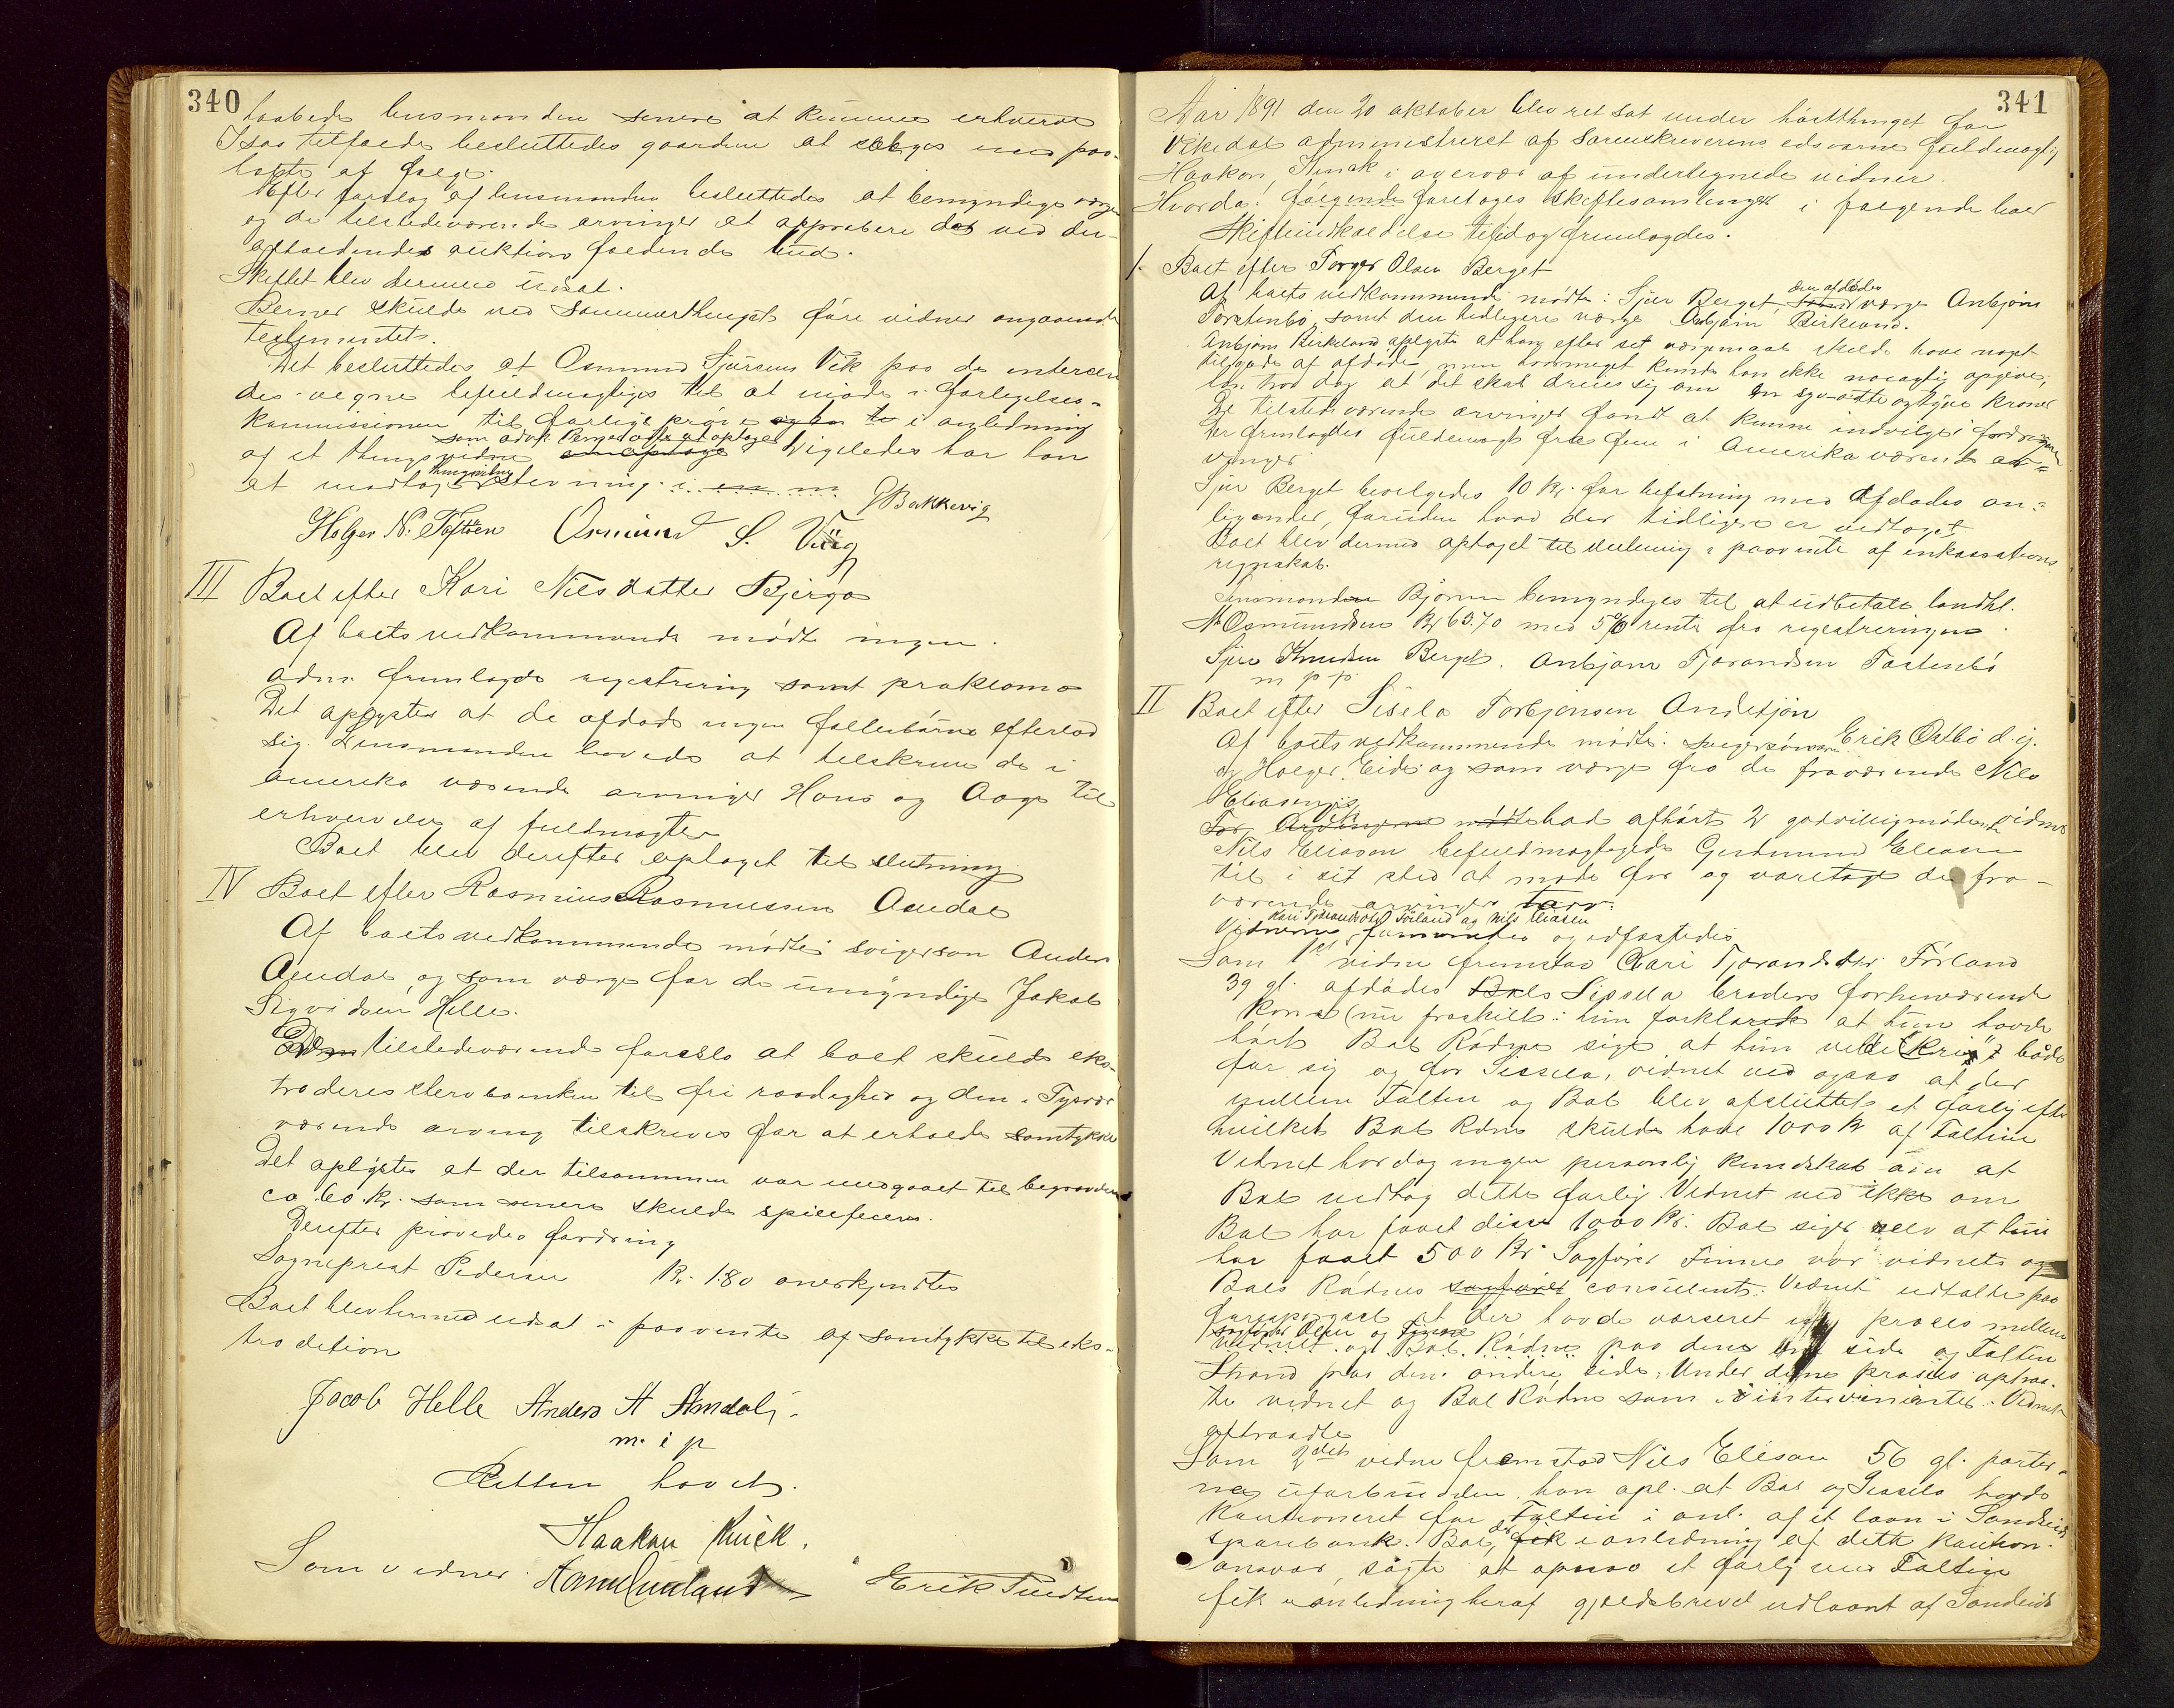 340
haabede lensmanden senere at kunne erhverve
I saa tilfælde besluttedes gaarden at sælges med paa-
hæfte af følge.
Efter forslag af lensmanden besluttedes at bemyndige værgen
og de tilstedeværende arvinger at approbere det ved den
afholdendes auktion faldende bud.
Skiftet blev dermed udsat.
Berner skulde ved sommerthinget føre vidner angaaende
testamentet.
Det besluttedes at Osmund Sjursen Vik paa de interesse
des vegne befuldmægtiges til at møde i forligelses-
kommissionen til forligsprøve i anledning
som advk. Berner agter at optage
af et thingsvidne Ligeledes har han
thingsvidne
at modtage stevning i
G Bakkevig
Holger N. Toftøen Osmund S. Viig
III Boet efter Kari Nilsdatter Bjerga
Af boets vedkommende mødte ingen.
adm. fremlagde registrering samt proklama
Det oplystes at de afdøde ingen fællesbørn efterlod
sig. Lensmanden lovede at tilskrive de i
Amerika værende arvinger Hans og Aage til
erhvervelse af fuldmagter
Boet blev derefter optaget til slutning
IV Boet efter Rasmus Rasmussen Amdal
Af boets vedkommende mødte svigersøn Anders
Amdal og som værge for de umyndige Jakob
Sigvidsen Helle.
De tilstedeværende foreslo at boet skulde eks-
traderes sterboenken til fri raadighed og den i Tysvær
værende arving tilskrives for at erholde samtykke
Det oplystes at der tilsammen var medgaaet til begravelsen
ca 60 Kr. som senere skulde specificeres.
Derefter prøvedes fordring
Sogneprest Pedersen Kr. 1.80 anerkjendtes
Boet blev hermed udsat i paavente af samtykke til eks-
tradition
Jacob Helle Anders A Amdal
m. i p
Retten hævet.
Haakon Knick.
Som vidner Erik Knudsen
341
Aar 1891 den 20 oktober blev ret sat under høstthinget for
Vikedal administreret af Sorenskriverens edsvorne fuldmægtig
Haakon Knick i overvær af undertegnede vidner.
Hvorda! følgende foretoges skiftesamlinger i følgende boer
Skifteindkaldelse tilid og fremlagdes.
1. Boet efter Torger Olsen Berget
den afdødes
Af boets vedkommende mødte: Sjur Berget, værge Anbjørn
Tostenbø, samt den tidligere værge Anbjørn Birkeland.
Anbjørn Birkeland oplyste at han efter sit værgemaal skulde have noget
tilgode af afdøde, men hvormeget kunde han ikke nøiagtig opgive,
han tror dog at det skal dreie sig om en syv-otte og tyve kroner
De tilstedeværende arvinger fandt at kunne indvilge i fordringen
Der fremlagdes fuldmagt fra fem i Amerika værende ar-
vinger
Sjur Berget bevilgedes 10 Kr. for befatning med Afdødes an-
liggender, foruden hvad der tidligere er vedtaget.
Boet blev dermed optaget til slutning i paavente af inkassations
regnskab.
Lensmanden Bjørnsen bemyndiges til at udbetale landhl.
N Osmundsen Kr 60.70 med 5% rente fra registreringen.
Sjur Knudsen Berget. Anbjørn Tjorandsen Tostenbø
m p p
II Boet efter Sisela Torbjønsen Andetjøn
Af boets vedkommende mødte: svigersønnen Erik Østbø d.y.
og Holger Eide og som værge fra de fraværende Nils
Eliasen
havde afhørt 2 godvillig mødende vidner
Nils Eliason befuldmægtigede Gudmund Eliason
til i sit sted at møde for og varetage de fra-
værende arvinger tarv.
Kari Tjorandsdtr Førland og Nils Eliasen
Vidnerne formantes og edfæstedes
Som 1ste vidne fremstod Kari Tjorandsdtr. Førland
39 gl. afdødes Sissela broders forhenværende
kone (nu fraskilt): hun forklarede at hun havde
hørt Bol Rødne sige at hun både
for sig og for Sissela, vidnet ved ogsaa at der
mellem Falten og Bol blev afsluttet et forlig efter
hvilket Bol Rødne skulde have 1000 Kr af Faltin
Vidnet har dog ingen personlig kundskab om at
Bol vedtog dette forlig. Vidnet ved ikke om
Bol har faaet disse 1000 Kr. Bol siger selv at hun
har faaet 500 Kr. Sagfører Finne var vidnets og
Bols Rødnes consulent. Vidnet udtalte paa
forespørgsel at der havde værseret en proces mellem
vidnet og Bol Rødne paa den ene side og Falten
Strand paa den anden side. Under denne proces optraa-
te vidnet og Bol Rødne som Vidnet
aftraadte
Som 2det vidne fremstod Nils Elisen 56 gl. parter-
ne uforbunden, han opl. at Bol og Sissela havde
kautioneret for Faltin i anl. af et laan i Sandeid
sparebank. Bol, i anledning af dette kaution-
ansvar, søgte at opnaa et forlig med Faltin
fik i anledning heraf gjældsbrevet udlaant af Sandeids